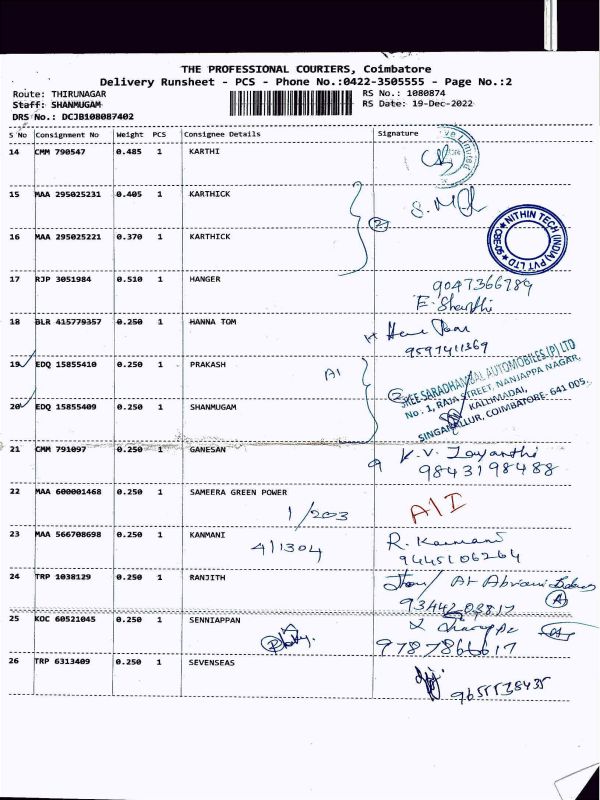 THE PROFESSIONAL COURIERS, Coimbatore
Delivery Runsheet - PCS - Phone No.:0422-3505555 - Page No.:2
Route: THIRUNAGAR
RS No.: 1080874
Staff: SHANMUGAM
RS Date: 19-Dec-2022
DRS No.: DCJB108087402
S No Consignment No Weight PCS Consignee Details Signature
14 CMM 790547 0.485 1 KARTHI
15 MAA 295025231 0.405 1 KARTHICK
2
16 MAA 295025221 0.370 1 KARTHICK
NITHIN TECH (INDIA) PVT LTD
17 RJP 3051984 0.510 1 HANGER
9047366789
18 BLR 415779357 0.250 1 HANNA TOM
9597411369
19 EDQ 15855410 0.250 1 PRAKASH
SREE SARADHAMBAL AUTOMOBILES (P) LTD
No. 1, RAJA STREET, NANJAPPA NAGAR,
KALLIMADAI,
SINGANALLUR, COIMBATORE- 641 005.
20 EDQ 15855409 0.250 1 SHANMUGAM
21 CMM 791097 0.250 1 GANESAN
K.V. Jayanthi
9843198488
22 MAA 600001468 0.250 1 SAMEERA GREEN POWER
1/203
A/I
23 MAA 566708698 0.250 1 KANMANI
4/1304
R. Kanmani
9445106264
24 TRP 1038129 0.250 1 RANJITH
A
25 KOC 60521045 0.250 1 SENNIAPPAN
9787866617
26 TRP 6313409 0.250 1 SEVENSEAS
9655538435